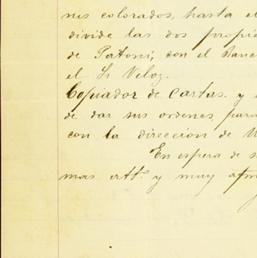 nes colorados, hasta el
divide las dos propie
de Patoni, con el Ranc
el Sr Veloz.
Copiador de Cartas. y s
de dar sus ordenes para
con la direccion de
En espera de s
mas att. y muy afmo